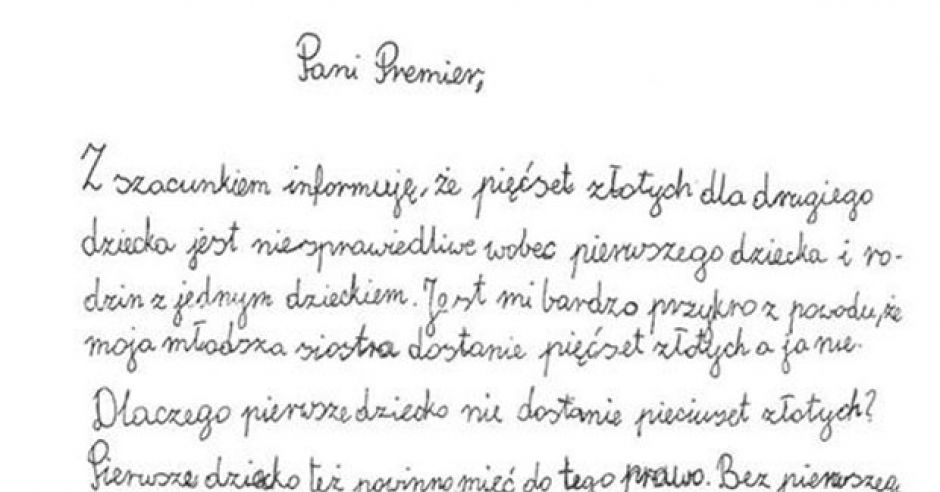 Pani Premier,
Z szacunkiem informuję, że pięćset złotych dla drugiego
dziecka jest niesprawiedliwe wobec pierwszego dziecka i ro-
dzin z jednym dzieckiem. Jest mi bardzo przykro z powodu, że
moja młodsza siostra dostanie pięćset złotych a ja nie.
Dlaczego pierwsze dziecko nie dostanie pieciuset złotych?
Pierwsze dziecko też powinno mięć do tego prawo. Bez